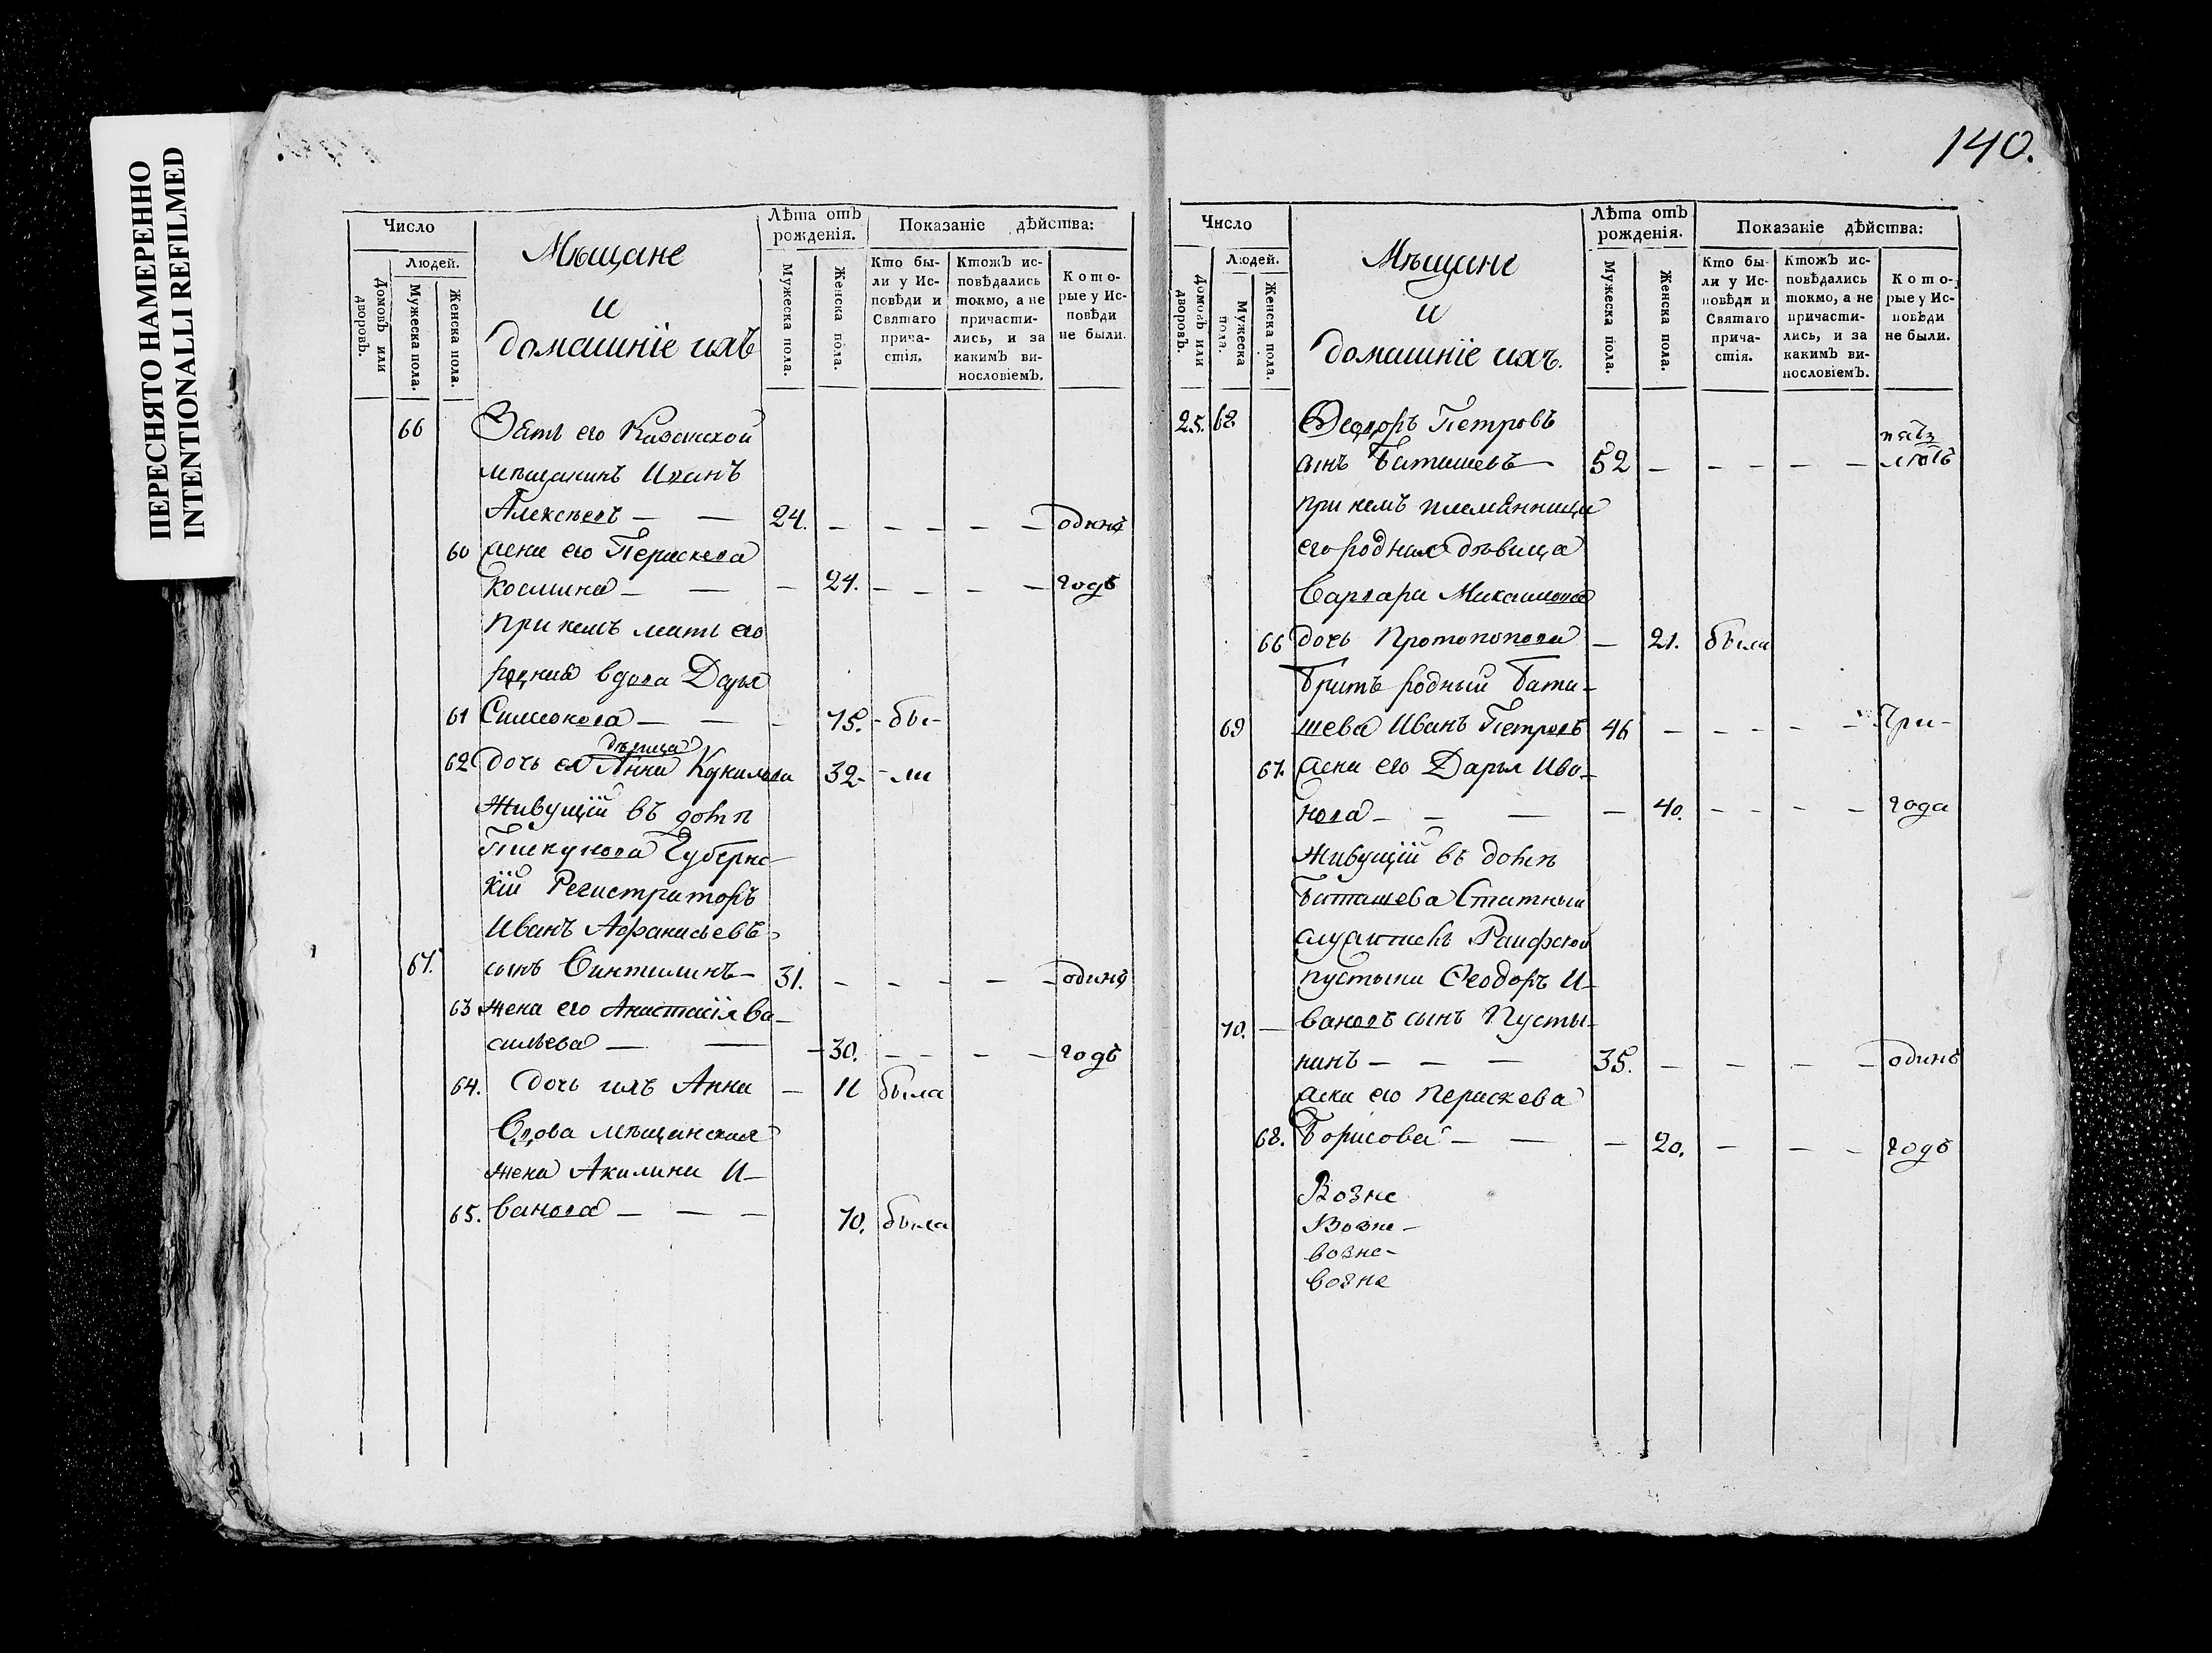 ПЕРЕСНЯТО НАМЕРЕННО
INTENTIONALLI REFILMED
Число
Людей.
Домовъ или дворовъ.
Мужеска пола.
Женска пола.
Мѣщане
и
домашніе ихъ
Лѣта отъ рожденія.
Мужеска пола.
Женска пола.
Показаніе дѣйства:
Кто бы-
ли у Ис-
повѣди и
Святаго
прича-
стія.
Ктожъ ис-
повѣдались
токмо, а не
причасти-
лись, и за
какимъ ви-
нословіемъ.
Кото-
рые у Ис-
повѣди
не были.
66 Зять его Казанской
мѣщанинъ Иванъ
Алексѣевъ — — 24. — — — — — одинъ
60 жена его Параскева
Космина — — — 24. — — — — годъ
При немъ мать его
родная вдова Дарья
61 Симеонова — — — 75. - бы-
дѣвица
62 дочь ея Анна 32 - ли
Живущій въ домѣ
Пискунова Губернс-
кій Регистраторъ
Иванъ Афанасьевъ
67. сынъ 31. — — — — — одинъ
63 жена его Анастасія Ва-
сильева — — — 30. — — — — годъ
64. дочь ихъ Анна — 11 была
Вдова мѣщанская
жена Акилина И-
65. ванова — — — 70. была
140.
Число
Людей.
Домовъ или дворовъ.
Мужеска пола.
Женска пола.
Мѣщане
и
домашніе ихъ.
Лѣта отъ рожденія.
Мужеска пола.
Женска пола.
Показаніе дѣйства:
Кто бы-
ли у Ис-
повѣди и
Святаго
прича-
стія.
Ктожъ ис-
повѣдались
токмо, а не
причасти-
лись, и за
какимъ ви-
нословіемъ.
Кото-
рые у Ис-
повѣди
не были.
25. 68 Ѳеодоръ Петровъ
сынъ Баташевъ — 52 — — — — — пять
лѣтъ
при немъ племянница
его родная дѣвица
Варвара Михаилова
66 дочь Протопопова — 21. была
Братъ родный Бата-
69 шева Иванъ Петровъ 46 — — — — — Три-
67. жена его Дарья Ива-
нова — — — — 40. — — — — года
Живущій въ домѣ
Баташева Статный
служитель Раифской
пустыни Ѳеодоръ И-
70. — вановъ сынъ Пусты-
нинъ — — — 35. — — — — одинъ
жена его Параскева
68. Борисова — — — 20. — — — годъ
Возне
Возне-
возне-
возне